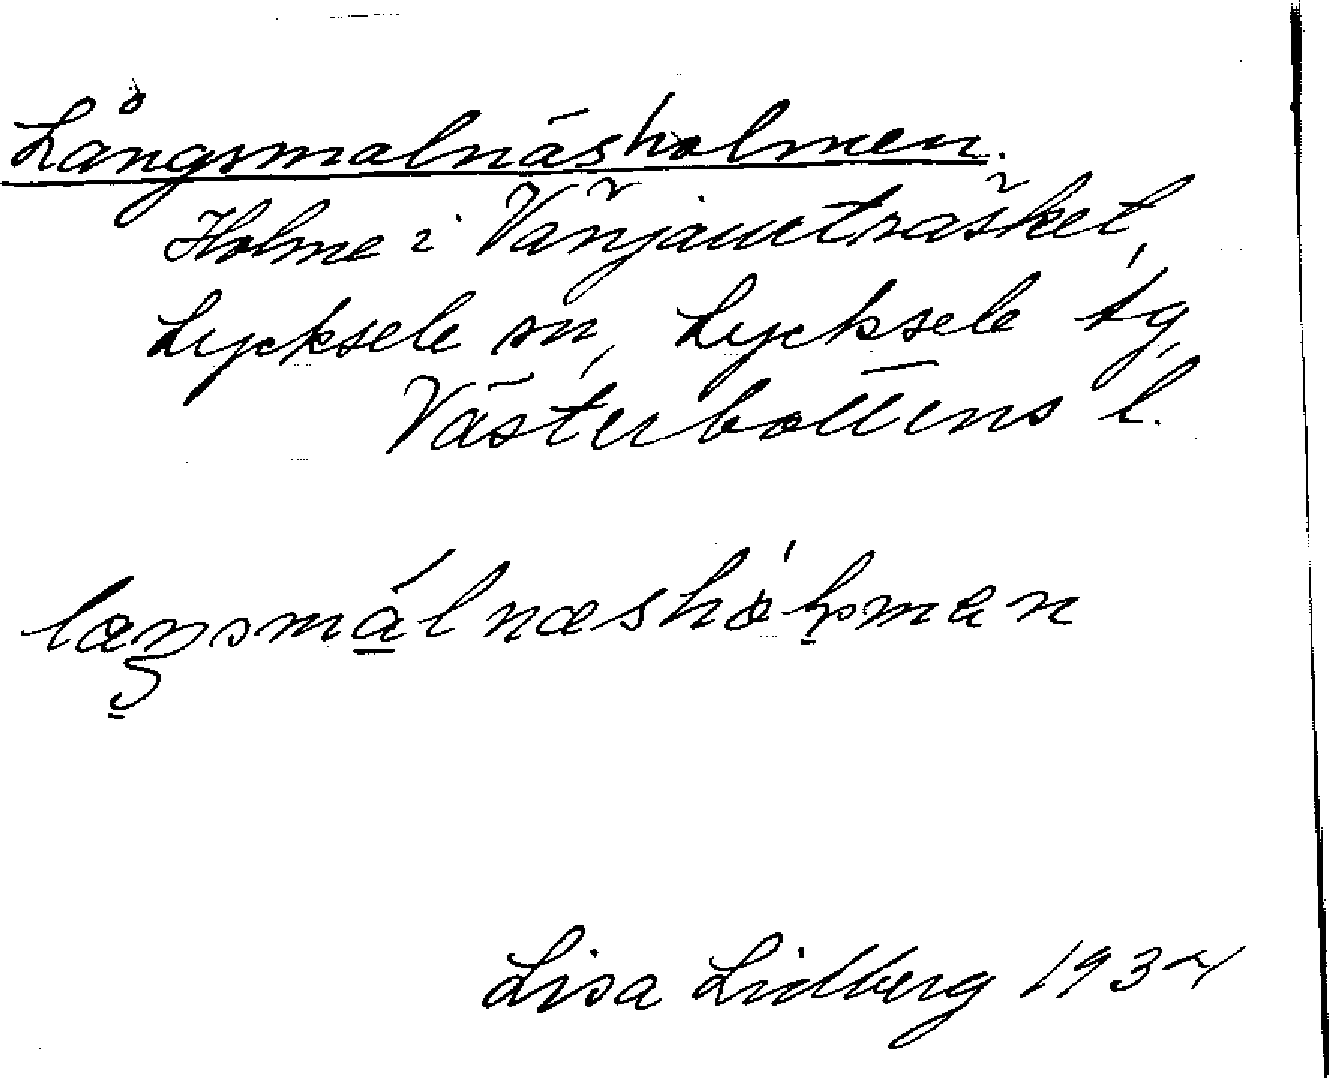 Långsmalnäsholmen.
Holme i Vänjaurträsket,
Lycksele sn, Lycksele tg,
Västerbottens l.
Lisa Lidberg 1937